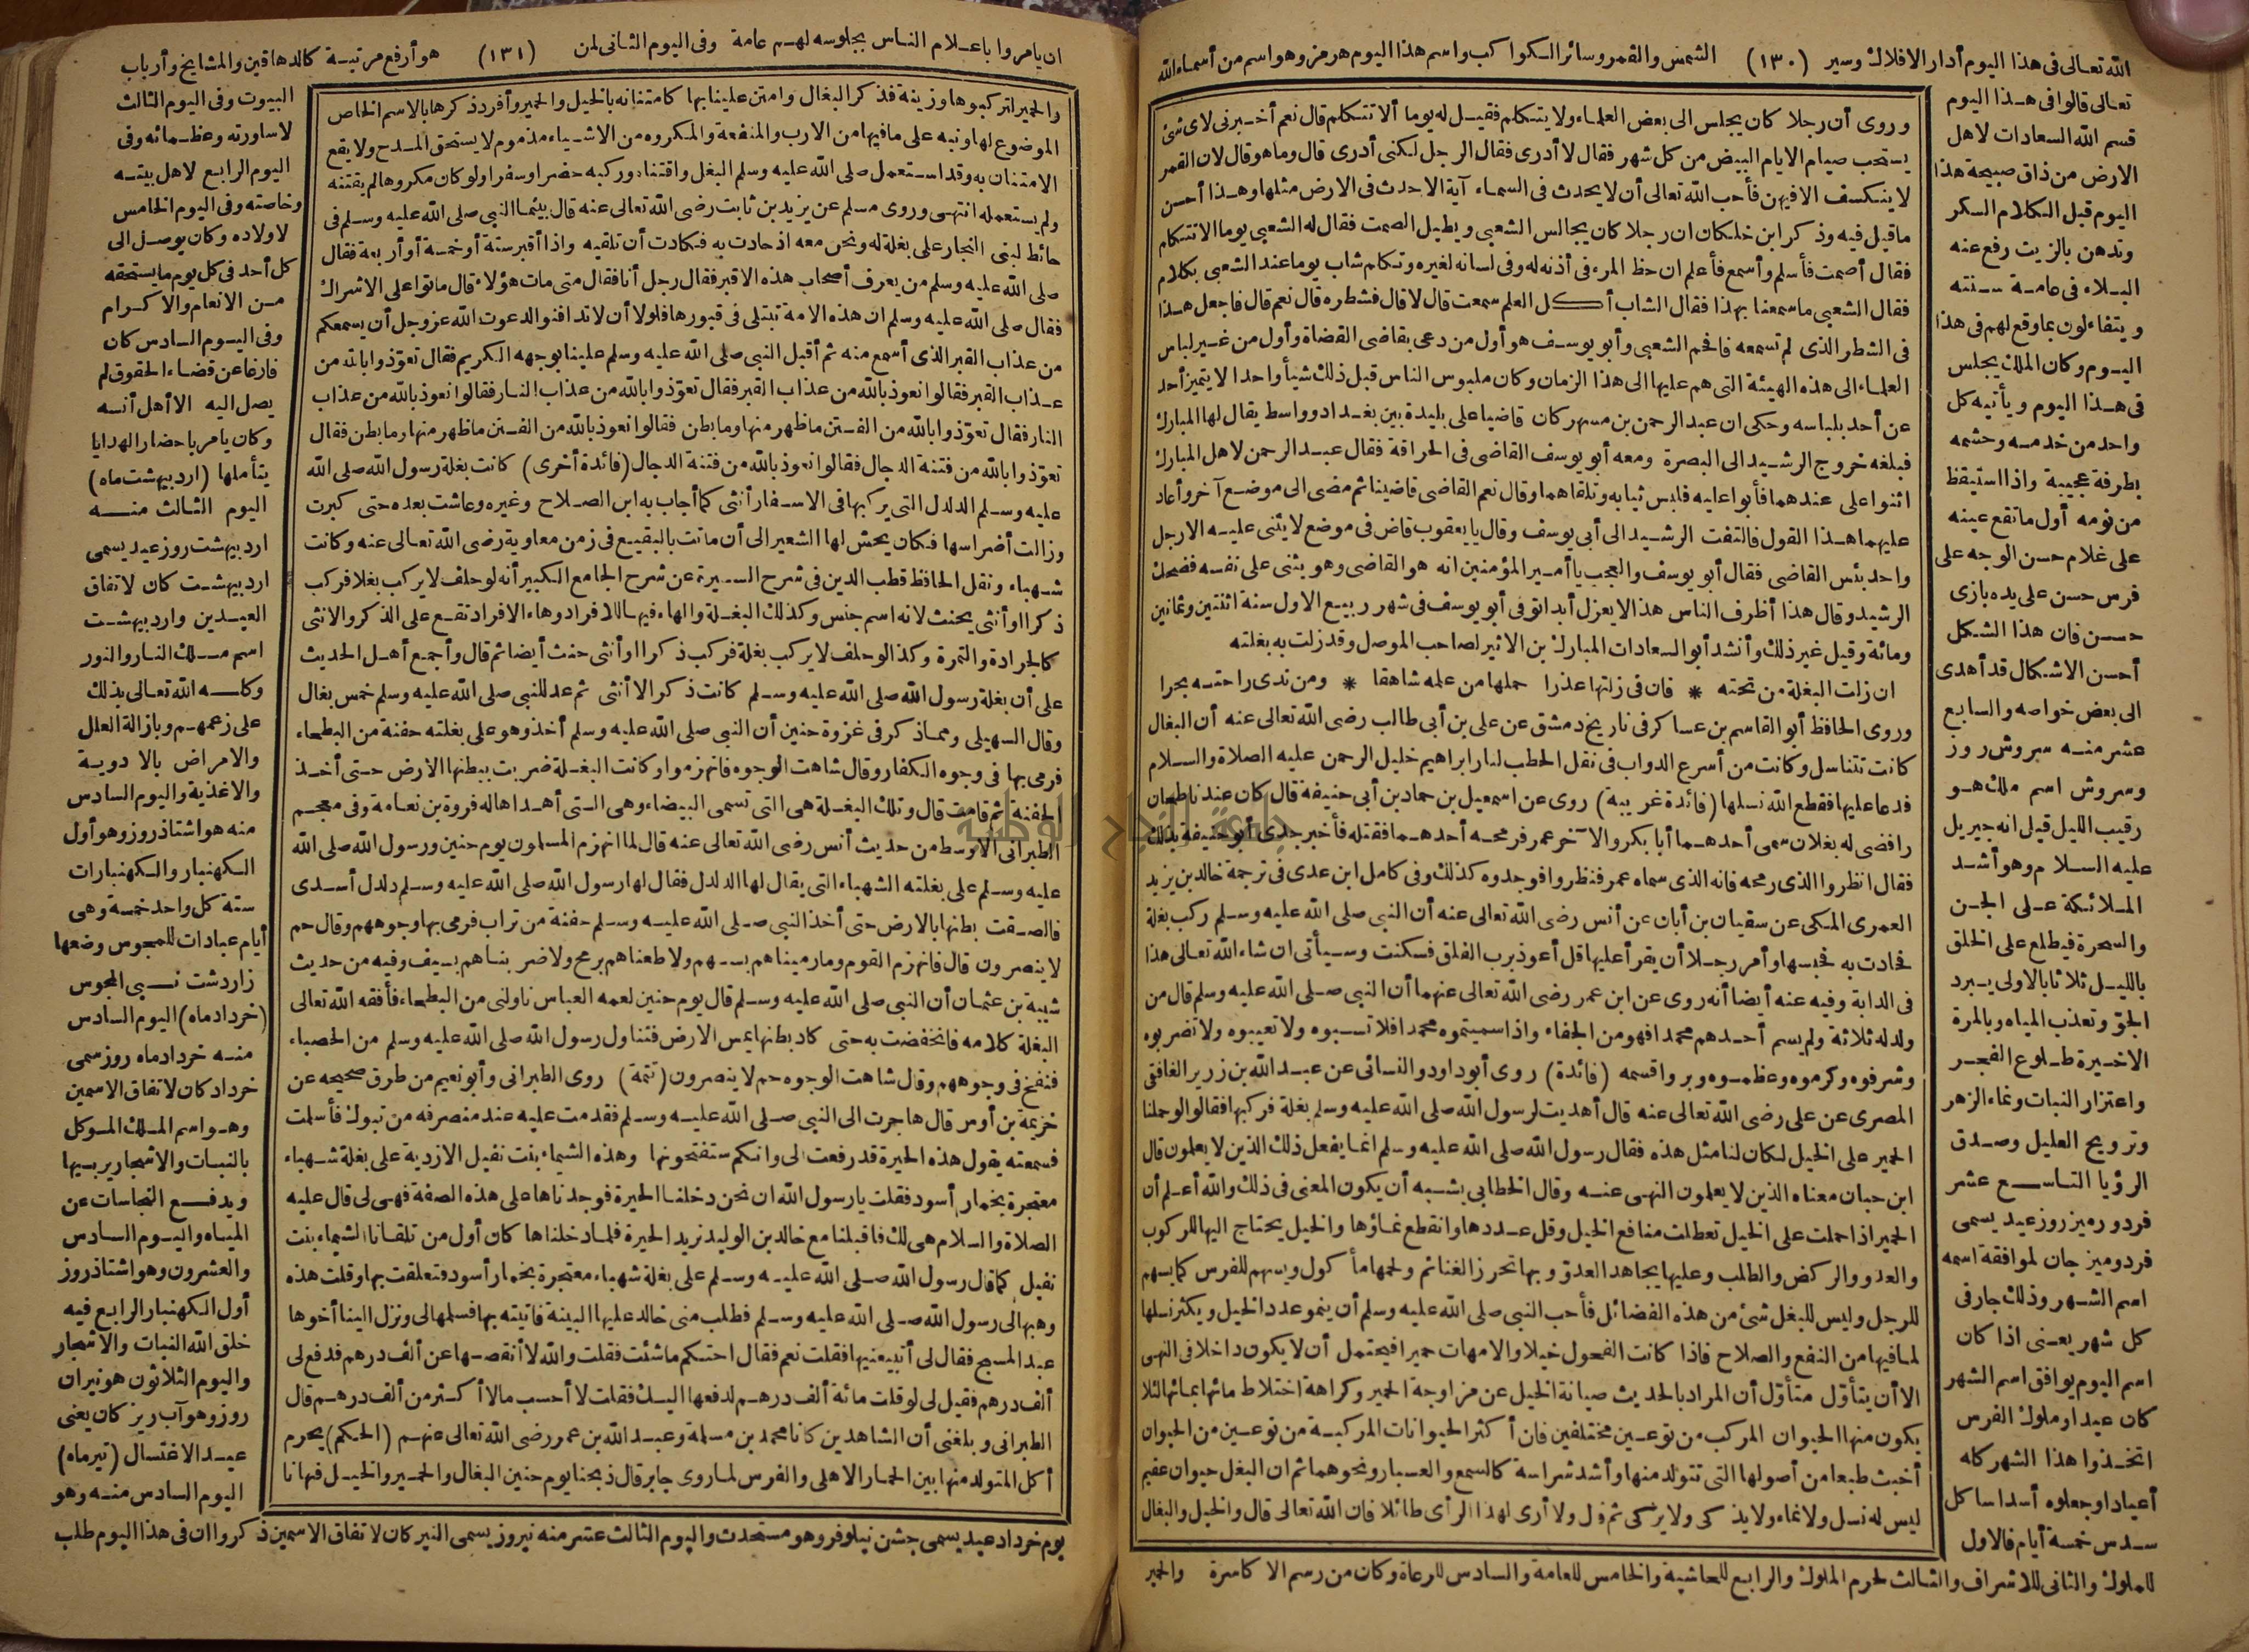 الله تعالى فى هذا اليوم أدار الافلاك وسير (١٣٠) الشمس والقمر وسائر الكواكب واسم هذا اليوم هرمز وهو اسم من أسماء الله
تعالى قالوا فى هذا اليوم
قسم الله السعادات لاهل
الارض من ذاق صبيحة هذا
اليوم قبل الكلام السكر
وتدهن بالزيت رفع عنه
البلاء فى عامة سنته
ويتفاءلون بما وقع لهم فى هذا
اليوم وكان الملك يجلس
فى هذا اليوم ويأتيه كل
واحد من خدمه وحشمه
بطرفة عجيبة واذا استيقظ
من نومه أول ما تقع عينه
على غلام حسن الوجه على
فرس حسن على يده بازى
حسن فان هذا الشكل
أحسن الاشكال قد أهدى
الى بعض خواصه والسابع
عشر منه سروش روز
وسروش اسم ملك هو
رقيب الليل قيل انه جبريل
عليه السلام وهو أشد
الملائكة على الجن
والسحرة فيطلع على الخلق
بالليل ثلاثا بالاولى يبرد
الجو وتعذب المياه وبالمرة
الاخيرة طلوع الفجر
واعتزار النبات ونماء الزهر
وترويح العليل وصدق
الرؤيا التاسع عشر
فردورميز روز عيد يسمى
فردوميز جان لموافقة اسمه
اسم الشهر وذلك جار فى
كل شهر يعنى اذا كان
اسم اليوم يوافق اسم الشهر
كان عيدا وملوك الفرس
اتخذوا هذا الشهر كله
أعيادا وجعلوه أسداسا كل
سدس خمسة أيام فالاول
للملوك والثانى للاشراف والثالث لخرم الملوك والرابع للحاشية والخامس للعامة والسادس للرعاة وكان من رسم الاكاسرة والحمير
وروى أن رجلا كان يجلس الى بعض العلماء ولا يتكلم فقيل له يوما ألا تتكلم قال نعم أخبرنى لاى شئ
يستحب صيام الايام البيض من كل شهر فقال لا أدرى فقال الرجل لكنى أدرى قال وما هو قال لان القمر
لا ينكسف الا فيهن فأحب الله تعالى أن لا يحدث فى السماء آية الا حدث فى الارض مثلها وهذا أحسن
ما قيل فيه وذكر ابن خلكان ان رجلا كان يجالس الشعبى ويطيل الصمت فقال له الشعبى يوما الا تتكلم
فقال أصمت فأسلم وأسمع فأعلم ان حظ المرء فى أذنه له وفى لسانه لغيره وتكلم شاب يوما عند الشعبى بكلام
فقال الشعبى ما سمعنا بهذا فقال الشاب أكل العلم سمعت قال لا قال فشطره قال نعم قال فاجعل هذا
فى الشطر الذى لم تسمعه فالحم الشعبى وأبو يوسف هو أول من دعى بقاضى القضاة وأول من غير لباس
العلماء الى هذه الهيئة التى هم عليها الى هذا الزمان وكان ملبوس الناس قبل ذلك شيأ واحدا لا يتميز أحد
عن أحد بلباسه وحكى ان عبد الرحمن بن مسهر كان قاضيا على بليدة بين بغداد وواسط يقال لها المبارك
فبلغه خروج الرشيد الى البصرة ومعه أبو يوسف القاضى فى الحراقة فقال عبد الرحمن لاهل المبارك
اثنوا على عندهما فأبوا عليه فلبس ثيابه وتلقاهما وقال نعم القاضى قاضينا ثم مضى الى موضع آخر وأعاد
عليهما هذا القول فالتفت الرشيد الى أبى يوسف وقال يا يعقوب قاض فى موضع لا يثنى عليه الا رجل
واحد بئس القاضى فقال أبو يوسف والعجب يا أمير المؤمنين انه هو القاضى وهو يثنى على نفسه فضحك
الرشيد وقال هذا أظرف الناس هذا لا يعزل أبدا توفى أبو يوسف فى شهر ربيع الاول سنة اثنتين وثمانين
ومائة وقيل غير ذلك وأنشد أبو السعادات المبارك بن الاثير لصاحب الموصل وقد زلت به بغلته
ان زلت البغلة من تحته * فان فى زلتها عذرا حملها من علمه شاهقا * ومن ندى راحته بحرا
وروى الحافظ أبو القاسم بن عساكر فى تاريخ دمشق عن على بن أبى طالب رضى الله تعالى عنه أن البغال
كانت تتناسل وكانت من أسرع الدواب فى نقل الحطب لنار ابراهيم خليل الرحمن عليه الصلاة والسلام
فدعا عليها فقطع الله نسلها (فائدة غريبة) روى عن اسمعيل بن حماد بن أبى حنيفة قال كان عندنا طحان
رافضى له بغلان سمى أحدهما أبا بكر والآخر عمر فرمحه أحدهما فقتله فأخبر جدى أبو حنيفة بذلك
فقال انظروا الذى رمحه فانه الذى سماه عمر فنظروا فوجدوه كذلك وفى كامل ابن عدى فى ترجمة خالد بن يزيد
العمرى المكى عن سفيان بن أبان عن أنس رضى الله تعالى عنه أن النبى صلى الله عليه وسلم ركب بغلة
فحادت به فحبسها وأمر رجلا أن يقرأ عليها قل أعوذ برب الفلق فسكنت وسيأتى ان شاء الله تعالى هذا
فى الدابة وفيه عنه أيضا أنه روى عن ابن عمر رضى الله تعالى عنهما أن النبى صلى الله عليه وسلم قال من
ولد له ثلاثة ولم يسم أحدهم محمدا فهو من الجفاء واذا سميتموه محمدا فلا تسبوه ولا تعيبوه ولا تضربوه
وشرفوه وكرموه وعظموه وبروا قسمه (فائدة) روى أبو داود والنسائى عن عبد الله بن زرير الغافقى
المصرى عن على رضى الله تعالى عنه قال أهديت لرسول الله صلى الله عليه وسلم بغلة فركبها فقالوا لو حملنا
الحمير على الخيل لكان لنا مثل هذه فقال رسول الله صلى الله عليه وسلم انما يفعل ذلك الذين لا يعلمون قال
ابن حبان معناه الذين لا يعلمون النهى عنه وقال الخطابى يشبه أن يكون المعنى فى ذلك والله أعلم أن
الحمير اذا حملت على الخيل تعطلت منافع الخيل وقل عددها وانقطع نماؤها والخيل يحتاج اليها للركوب
والعدو والركض والطلب وعليها يجاهد العدو وبها تحرز الغنائم ولحمها مأكول ويسهم للفرس كما يسهم
للرجل وليس للبغل شئ من هذه الفضائل فأحب النبى صلى الله عليه وسلم أن ينمو عدد الخيل ويكثر نسلها
لما فيها من النفع والصلاح فاذا كانت الفحول خيلا والامهات حميرا فيحتمل أن لا يكون داخلا فى النهى
الا أن يتأول متأول أن المراد بالحديث صيانة الخيل عن مزاوجة الحمير وكراهة اختلاط مائها بمائها لئلا
يكون منها الحيوان المركب من نوعين مختلفين فان أكثر الحيوانات المركبة من نوعين من الحيوان
أخبث طبعا من أصولها التى تتولد منها وأشد شراسة كالسمع والعسبار ونحوهما ثم ان البغل حيوان عقيم
ليس له نسل ولا نماء ولا يذكى ولا يزكى ثم قال ولا أرى لهذا الرأى طائلا فان الله تعالى قال والخيل والبغال
ان يامروا باعلام الناس بجلوسه لهم عامة وفى اليوم الثانى لمن (١٣١) هو أرفع مرتبة كالدهاقين والمشايخ وأرباب
والحمير لتركبوها وزينة فذكر البغال وامتن علينا بها كامتنانه بالخيل والحمير وأفرد ذكرها بالاسم الخاص
الموضوع لها ونبه على ما فيها من الارب والمنفعة والمكروه من الاشياء مذموم لا يستحق المدح ولا يقع
الامتنان به وقد استعمل صلى الله عليه وسلم البغل واقتناه وركبه حضرا وسفرا ولو كان مكروها لم يقتنه
ولم يستعمله انتهى وروى مسلم عن يزيد بن ثابت رضى الله تعالى عنه قال بينما النبى صلى الله عليه وسلم فى
حائط لبنى النجار على بغلة له ونحن معه اذ حادت به فكادت أن تلقيه واذا أقبر ستة أو خمسة أو أربعة فقال
صلى الله عليه وسلم من يعرف أصحاب هذه الاقبر فقال رجل أنا فقال متى مات هؤلاء قال ماتوا على الاشراك
فقال صلى الله عليه وسلم ان هذه الامة تبتلى فى قبورها فلولا أن لا تدافنوا لدعوت الله عز وجل أن يسمعكم
من عذاب القبر الذى أسمع منه ثم أقبل النبى صلى الله عليه وسلم علينا بوجهه الكريم فقال تعوذوا بالله من
عذاب القبر فقالوا نعوذ بالله من عذاب القبر فقال تعوذوا بالله من عذاب النار فقالوا نعوذ بالله من عذاب
النار فقال تعوذوا بالله من الفتن ما ظهر منها وما بطن فقالوا نعوذ بالله من الفتن ما ظهر منها وما بطن فقال
تعوذوا بالله من فتنة الدجال فقالوا نعوذ بالله من فتنة الدجال (فائدة أخرى) كانت بغلة رسول الله صلى الله
عليه وسلم الدلدل التى يركبها فى الاسفار أنثى كما أجاب به ابن الصلاح وغيره وعاشت بعده حتى كبرت
وزالت أضراسها فكان يحش لها الشعير الى أن ماتت بالبقيع فى زمن معاوية رضى الله تعالى عنه وكانت
شهباء ونقل الحافظ قطب الدين فى شرح السيرة عن شرح الجامع الكبير أنه لو حلف لا يركب بغلا فركب
ذكرا أو أنثى يحنث لانه اسم جنس وكذلك البغلة والهاء فيها للافراد وهاء الافراد تقع على الذكر والانثى
كالجرادة والتمرة وكذا لو حلف لا يركب بغلة فركب ذكرا أو أنثى حنث أيضا ثم قال وأجمع أهل الحديث
على أن بغلة رسول الله صلى الله عليه وسلم كانت ذكرا لا أنثى ثم عد للنبى صلى الله عليه وسلم خمس بغال
وقال السهيلى ومما ذكر فى غزوة حنين أن النبى صلى الله عليه وسلم أخذ وهو على بغلته حفنة من البطحاء
فرمى بها فى وجوه الكفار وقال شاهت الوجوه فانهزموا وكانت البغلة ضربت ببطنها الارض حتى أخذ
الحفنة ثم قامت قال وتلك البغلة هى التى تسمى البيضاء وهى التى أهداها له فروة بن نعامة وفى معجم
الطبرانى الاوسط من حديث أنس رضى الله تعالى عنه قال لما انهزم المسلمون يوم حنين ورسول الله صلى الله
عليه وسلم على بغلته الشهباء التى يقال لها الدلدل فقال لها رسول الله صلى الله عليه وسلم دلدل أسدى
فالصقت بطنها بالارض حتى أخذ النبى صلى الله عليه وسلم حفنة من تراب فرمى بها وجوههم وقال حم
لا ينصرون قال فانهزم القوم وما رميناهم بسهم ولا طعناهم برمح ولا ضربناهم بسيف وفيه من حديث
شيبة بن عثمان أن النبى صلى الله عليه وسلم قال يوم حنين لعمه العباس ناولنى من البطحاء فأفقه الله تعالى
البغلة كلامه فانخفضت به حتى كاد بطنها يمس الارض فتناول رسول الله صلى الله عليه وسلم من الحصباء
فنفخ فى وجوههم وقال شاهت الوجوه حم لا ينصرون (تتمة) روى الطبرانى وأبو نعيم من طرق صحيحه عن
خزيمة بن أوس قال هاجرت الى النبى صلى الله عليه وسلم فقدمت عليه عند منصرفه من تبوك فأسلمت
فسمعته يقول هذه الحيرة قد رفعت الى وانكم ستفتحونها وهذه الشيماء بنت نفيل الازدية على بغلة شهباء
معتجرة بخمار أسود فقلت يا رسول الله ان نحن دخلنا الحيرة فوجدناها على هذه الصفة فهى لى قال عليه
الصلاة والسلام هى لك فاقبلنا مع خالد بن الوليد نريد الحيرة فلما دخلناها كان أول من تلقانا الشيماء بنت
نفيل كما قال رسول الله صلى الله عليه وسلم على بغلة شهباء معتجرة بخمار أسود فتعلقت بها وقلت هذه
وهبها لى رسول الله صلى الله عليه وسلم فطلب منى خالد عليها البينة فاتيته بها فسلمها لى ونزل الينا أخوها
عبد المسيح فقال لى أتبيعنيها فقلت نعم فقال احتكم ما شئت فقلت والله لا أنقصها عن ألف درهم فدفع لى
ألف درهم فقيل لى لو قلت مائة ألف درهم لدفعها اليك فقلت لا أحسب مالا أكثر من ألف درهم قال
الطبرانى وبلغنى أن الشاهدين كانا محمد بن مسلمة وعبد الله بن عمر رضى الله تعالى عنهم (الحكم) يحرم
أكل المتولد منها بين الحمار الاهلى والفرس لما روى جابر قال ذبحنا يوم حنين البغال والحمير والخيل فنهانا
البيوت وفى اليوم الثالث
لاساورته وعظمائه وفى
اليوم الرابع لاهل بيته
وخاصته وفى اليوم الخامس
لاولاده وكان يوصل الى
كل أحد فى كل يوم ما يستحقه
من الانعام والاكرام
وفى اليوم السادس كان
فارغا عن قضاء الحقوق لم
يصل اليه الا أهل أنسه
وكان يامر باحضار الهدايا
يتأملها (ارديبهشت ماه)
اليوم الثالث منه
ارديبهشت روز عيد يسمى
ارديبهشت كان لاتفاق
العيدين وارديبهشت
اسم ملك النار والنور
وكله الله تعالى بذلك
على زعمهم وبازالة العلل
والامراض بالادوية
والاغذية واليوم السادس
منه هو اشتاذ روز وهو أول
الكهنبار والكهنبارات
ستة كل واحد خمسة وهى
أيام عبادات للمجوس وضعها
زاردشت نبى المجوس
(خرداد ماه) اليوم السادس
منه خرداد ماه روز سمى
خرداد كان لاتفاق الاسمين
وهو اسم الملك الموكل
بالنبات والاشجار يربيها
ويدفع النجاسات عن
المياه واليوم السادس
والعشرون وهو اشتاذ روز
أول الكهنبار الرابع فيه
خلق الله النبات والاشجار
واليوم الثلاثون هو نيران
روز وهو آب ريز كان يعنى
عيد الاغتسال (تير ماه)
اليوم السادس منه وهو
يوم خرداد عيد يسمى جشن نيلوفر وهو مستحدث واليوم الثالث عشر منه نيروز يسمى التير كان لاتفاق الاسمين ذكروا ان فى هذا اليوم طلب
جامعة النجاح الوطنية